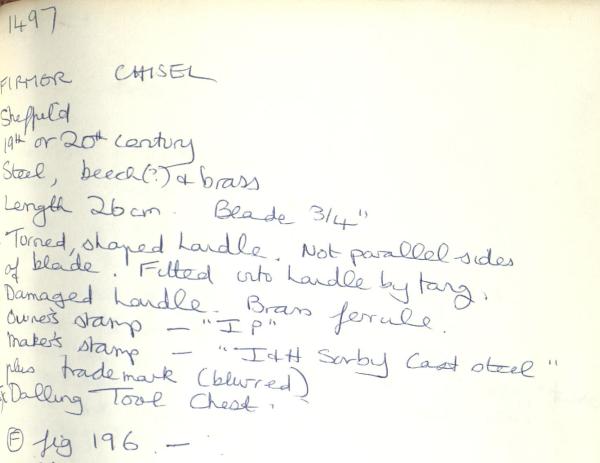 1497
FIRMER CHISEL
Sheffield
19th or 20th century
Steel, beech(?) & brass
Length 26cm. Blade 3/4"
Turned, shaped handle. Not parallel sides
of blade. Fitted into handle by tang.
Damaged handle. Brass ferrule.
Owner's stamp — "I P"
Maker's stamp — "I & H Sorby Cast steel"
plus trademark (blurred)
Dalling Tool Chest.
Ⓔ fig 196 —